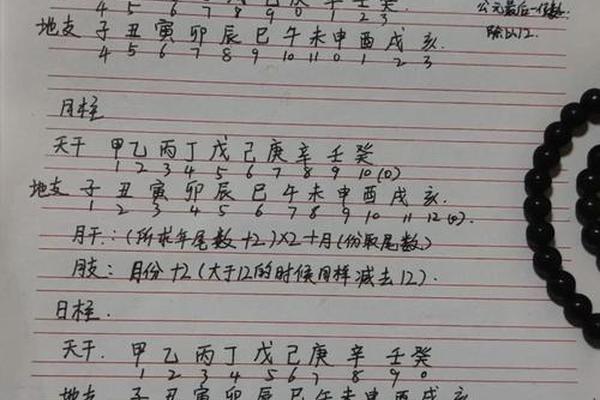 4 5 6 7 8 9 0 1 2 3
公元最后一位数.
地支 子 丑 寅 卯 辰 巳 午 未 申 酉 戌 亥.
除以12.
4 5 6 7 8 9 10 11 0 1 2 3
月柱
天干 甲 乙 丙 丁 戊 己 庚 辛 壬 癸
1 2 3 4 5 6 7 8 9 10(0)
地支 子 丑 寅 卯 辰 巳 午 未 申 酉 戌 亥.
1 2 3 4 5 6 7 8 9 10 11 12(0).
月干:(所求年尾数+2)×2+月(份取尾数)
月支: 月份+2(大于12的时候同样减去12).
日柱.
天干. 甲 乙 丙 丁 戊 己 庚 辛 壬 癸
1 2 3 4 5 6 7 8 9 0
地支 子 丑 寅 卯 辰 巳 午 未 申 酉 戌 亥